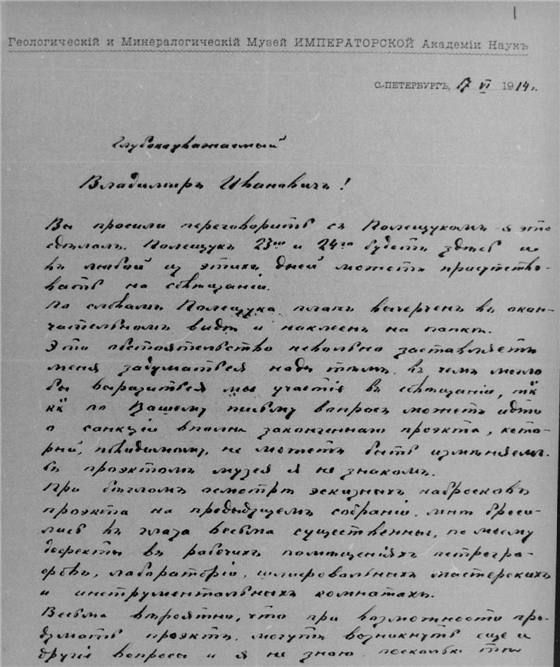 1
Геологическій и Минералогическій Музей ИМПЕРАТОРСКОЙ Академіи Наукъ
С.-ПЕТЕРБУРГЪ, 17 VI 1914.
Глубокоуважаемый
Владимиръ Ивановичъ!
Вы просили переговорить съ Полещукомъ я это
сдѣлалъ. Полещукъ 23го и 24го будетъ здѣсь и
въ любой изъ этихъ дней можетъ присутство-
вать на совѣщаніи.
По словамъ Полещука планъ вычерченъ въ окон-
чательномъ видѣ и наклеенъ на папки.
Это обстоятельство невольно заставляетъ
меня задуматься надъ тѣмъ, въ чемъ могло
бы выразиться мое участіе въ совѣщаніи, тк
кк по Вашему письму вопросъ можетъ идти
о санкціи вполнѣ законченнаго проэкта, кото-
рый, повидимому, не можетъ быть измѣняемъ.
Съ проэктомъ музея я не знакомъ.
При бѣгломъ осмотрѣ эскизныхъ набросковъ
проэкта на предыдущемъ собраніи, мнѣ броси-
лись въ глаза весьма существенные, по моему
дефекты въ рабочихъ помѣщеніяхъ петрогра-
фовъ, лабораторіи, шлифовальныхъ мастерскихъ
и инструментальныхъ комнатахъ.
Весьма вѣроятно, что при возможности про-
думать проэктъ, могутъ возникнуть еще и
другіе вопросы и я не знаю, поскольку